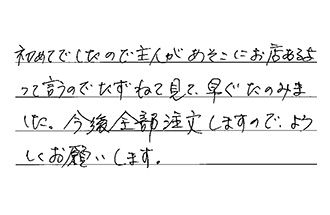 初めてでしたので主人があそこにお店あるよ
って言うのでたずねて見て、早ぐたのみま
した。今後全部注文しますので、よろ
しくお願いします。